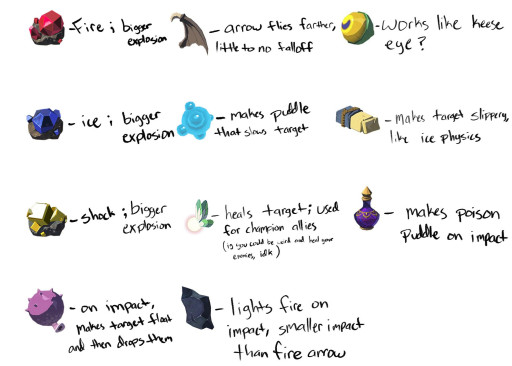 - Fire ; bigger
explosion
- arrow flies farther,
little to no falloff
- works like keese
eye?
- ice ; bigger
explosion
- makes puddle
that slows target
- makes target slippery,
like ice physics
- shock ; bigger
explosion
- heals target; used
for champion allies
(ig you could be weird and heal your
enemies, idk)
- makes poison
puddle on impact
- on impact,
makes target float
and then drops them
- lights fire on
impact, smaller impact
than fire arrow